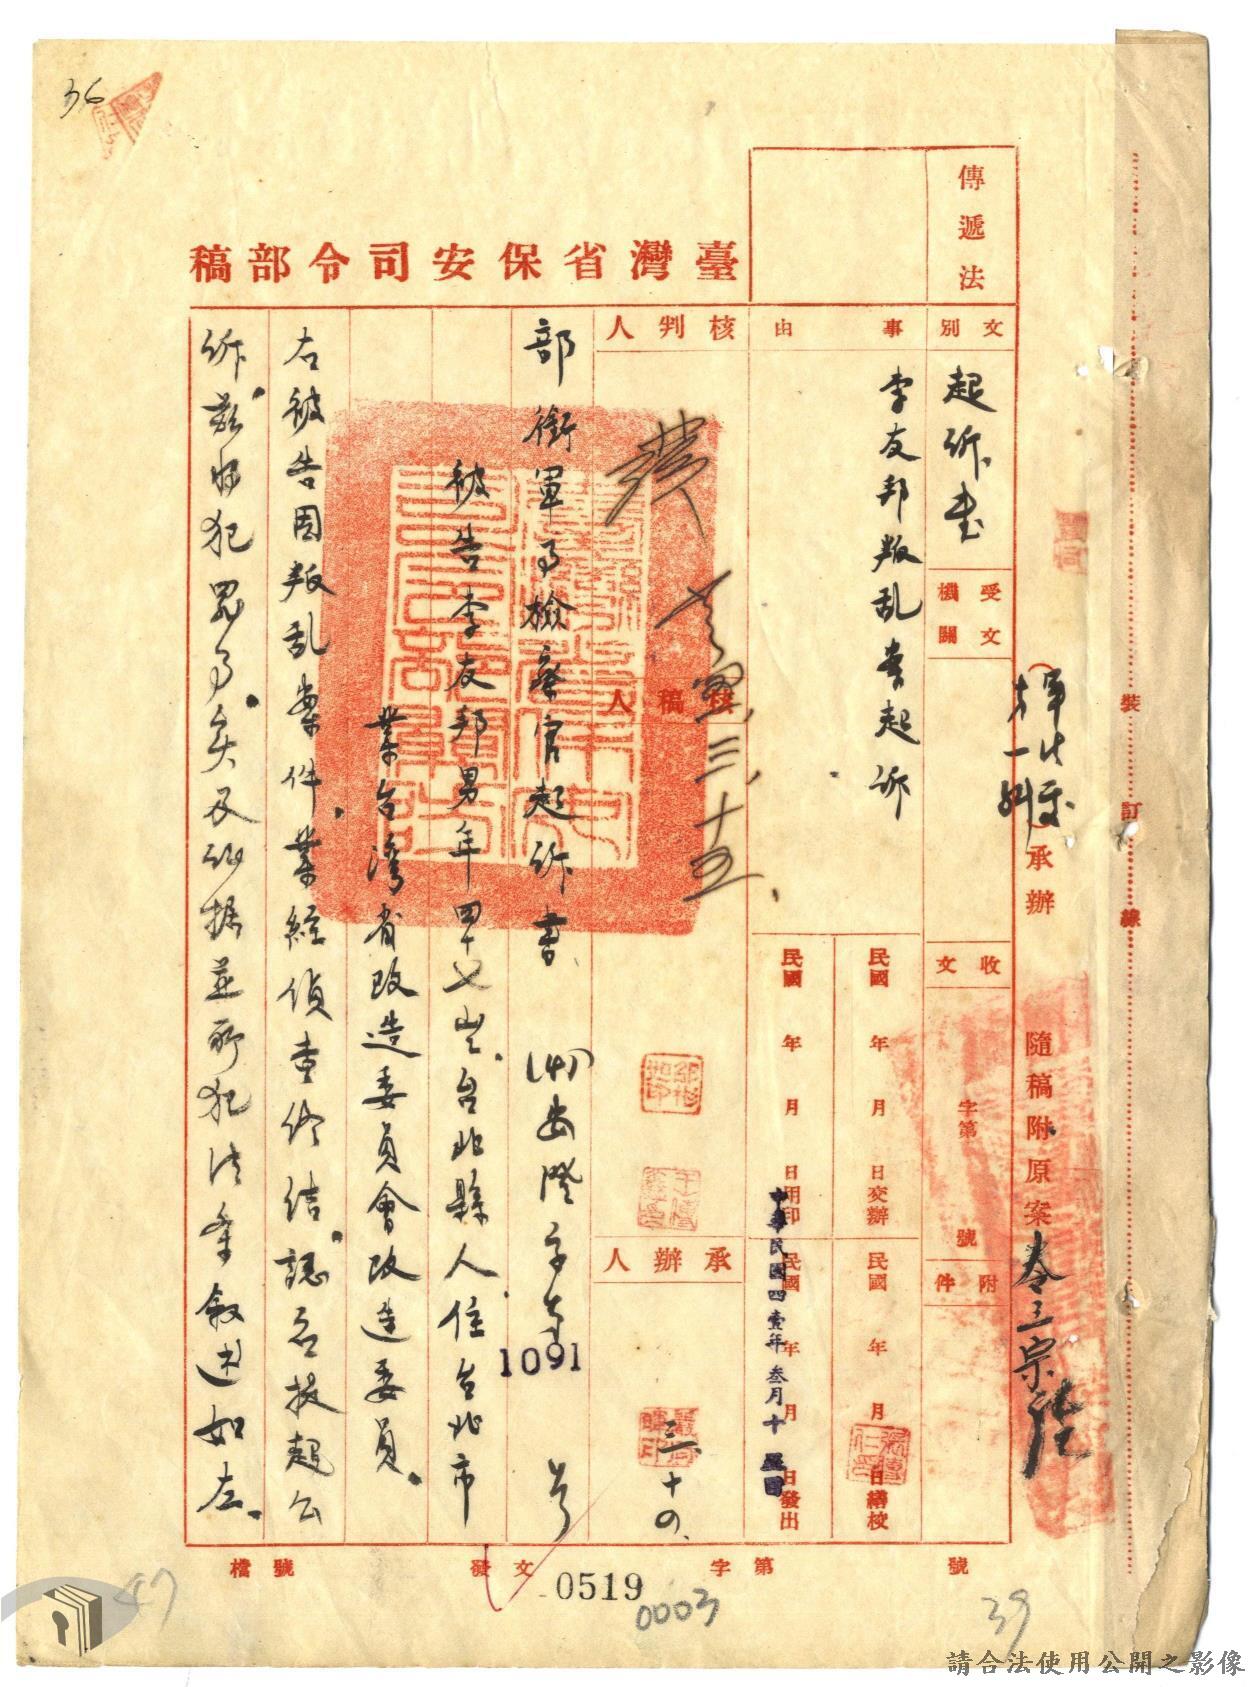 36
傳遞法
臺灣省保安司令部稿
文別
起訴書
受文機關
收文
字第
號
附件
事由
李友邦叛乱案起訴
民國 年 月 日交辦
民國 年 月 日繕校
民國 年 月 日用印
民國 年 月 日發出
中華民國四壹年叁月十五日
核判人
核稿人
三、十五、
承辦人
三、十四、
部銜軍事檢察官起訴書 (41)安澄字第1091號
被告李友邦男年四十七岁、台北縣人、住台北市
業台湾省改造委員會改造委員。
右被告因叛乱案件、業經偵查終結、認應提起公
訴、茲將犯罪事实及証据並所犯法条敘述如左。
(承辦
隨稿附原案
卷三宗
裝訂線
檔號
發文
字第
號
0519
0003
47
39
請合法使用公開之影像